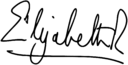 Elizabeth R